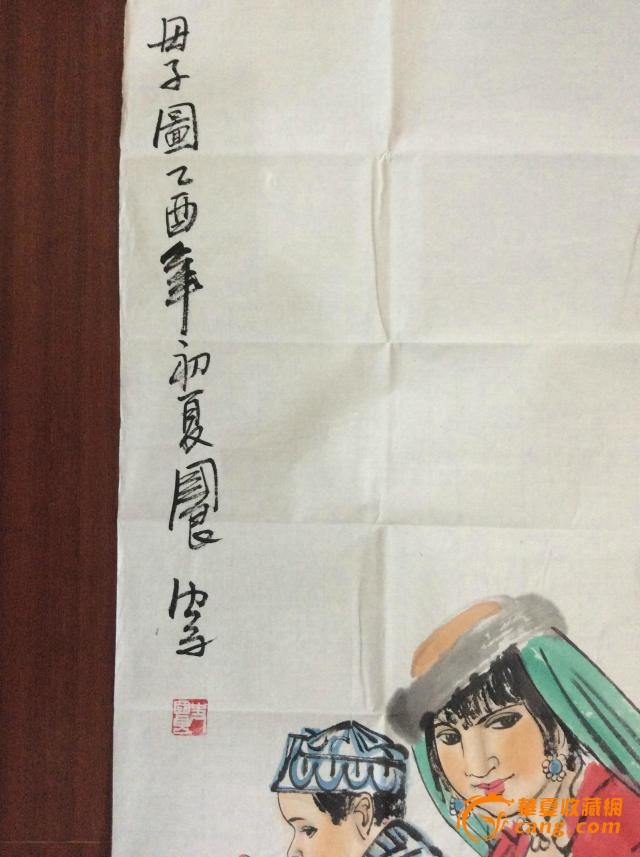 母子圖乙酉年初夏國良
華夏收藏網
cang.com